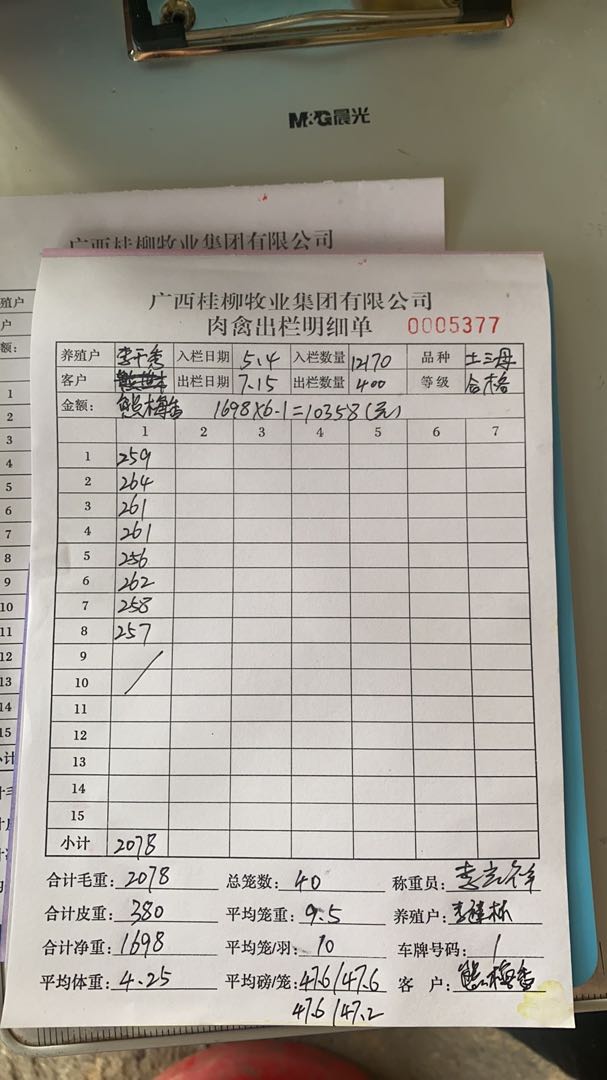 M&G晨光
广西桂柳牧业集团有限公司
广西桂柳牧业集团有限公司
肉禽出栏明细单 0005377
养殖户 李干秀 入栏日期 5.4 入栏数量 12170 品种 土三母
客户 出栏日期 7.15 出栏数量 400 等级 合格
金额: 熊梅香 1698×6.1=10358(元)
1 2 3 4 5 6 7
1 259
2 264
3 261
4 261
5 256
6 262
7 258
8 257
9
10
11
12
13
14
15
小计 2078
合计毛重: 2078 总笼数: 40 称重员:
合计皮重: 380 平均笼重: 9.5 养殖户:
合计净重: 1698 平均笼/羽: 10 车牌号码: /
平均体重: 4.25 平均磅/笼: 47.6/47.6 客 户: 熊梅香
47.6/47.2
殖户
户
额:
1
2
3
4
5
6
7
8
9
10
11
12
13
14
15
小计